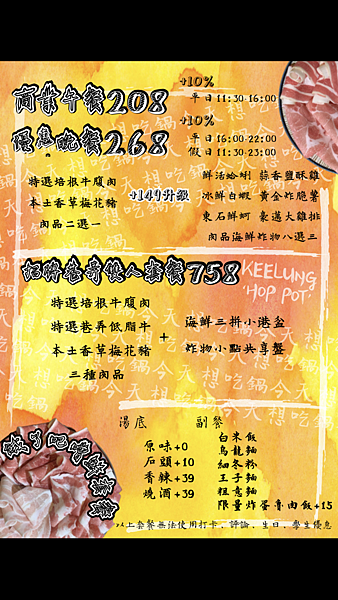 +10%
商業午餐208 平日11:30-16:00
+10%
優惠晚餐268 平日16:00-22:00
假日11:30-23:00
特選培根牛腹肉
本土香草梅花豬
肉品二選一
+149升級
鮮活蛤蜊 蒜香鹽酥雞
冰鮮白蝦 黃金炸脆薯
東石鮮蚵 豪邁大雞排
肉品海鮮炸物八選三
招牌巷哥雙人套餐758
KEELUNG
'HOP POT'
特選培根牛腹肉
特選巷弄低脂牛
本土香草梅花豬
三種肉品
+
海鮮三拼小港盆
炸物小點共享盤
今天想吃鍋今天想吃鍋
湯底
原味+0
石頭+10
香辣+39
燒酒+39
副餐
白米飯
烏龍麵
細冬粉
王子麵
粗意麵
限量炸蛋魯肉飯+15
以上套餐無法使用打卡、評論、生日、學生優惠